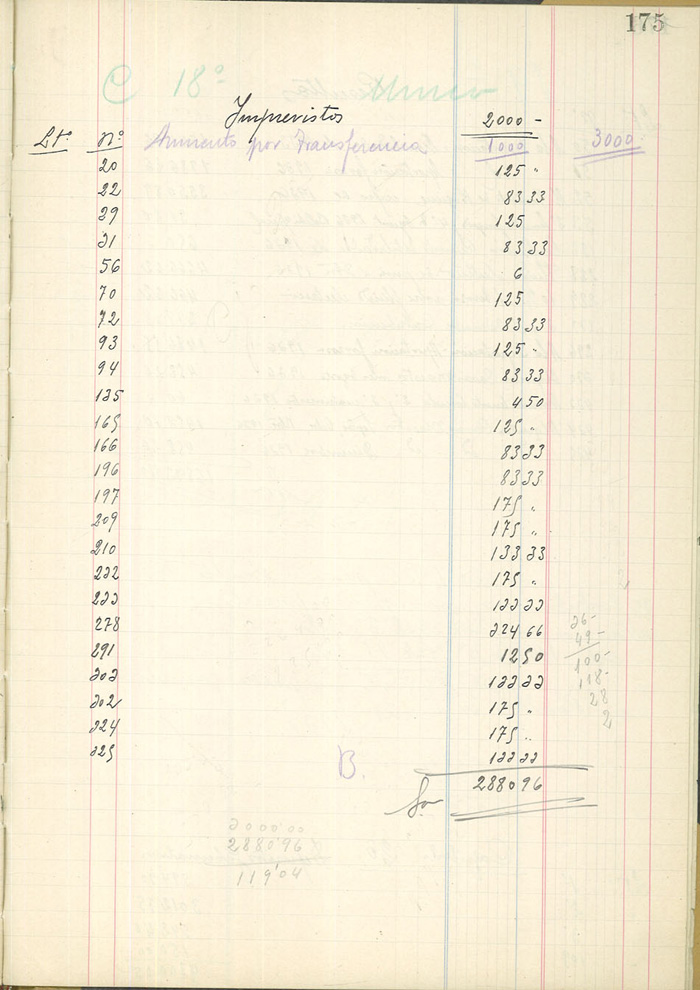 175
C 18º
Imprevistos 2000 -
Lº. Nº Aumento por transferencia 1000 3000
20 125 "
22 83 33
29 125
31 83 33
56 6
70 125
72 83 33
93 125 "
94 83 33
135 4 50
165 125 "
166 83 33
196 83 33
197 175 "
209 175 "
210 133 33
232 175 "
233 133 33
278 324 66
26-
49-
291 12 50
100-
303 133 33
118-
28
302 175 "
2
324 175 "
325 133 33
B
2880 96
3000'00
2880'96
119'04